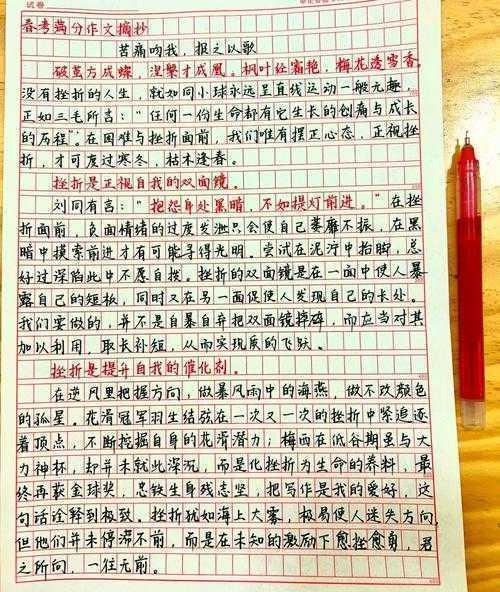 试卷
春考满分作文摘抄
苦痛吻我，报之以歌
破茧方成蝶，涅槃才成凰。枫叶经霜艳，梅花透雪香。
没有挫折的人生，就如同小球永远呈直线运动一般无趣。
正如三毛所言：“任何一份生命都有它生长的创痛与成长
的历程”。在困难与挫折面前，我们唯有摆正心态，正视挫
折，才可度过寒冬，枯木逢春。
挫折是正视自我的双面镜。
刘同有言：“抱怨身处黑暗，不如提灯前进。”在挫
折面前，负面情绪的过度发泄只会使自己萎靡不振，在黑
暗中摸索前进才有可能寻得光明。尝试在泥泞中抬脚，总
好过深陷此中不愿自拔。挫折的双面镜是在一面中使人暴
露自己的短板，同时又在另一面促使人发现自己的长处。
我们要做的，并不是自暴自弃把双面镜摔碎，而应当对其
加以利用，取长补短，从而实现质的飞跃。
挫折是提升自我的催化剂。
在逆风里把握方向，做暴风雨中的海燕，做不改颜色
的孤星。花滑冠军羽生结弦在一次又一次的挫折中紧追逐
着顶点，不断挖掘自身的花滑潜力；梅西在低谷期虽与大
力神杯，却并未就此深沉，而是化挫折为生命的养料，最
终再获金球奖，史铁生身残志坚，把写作是我的爱好，这
句话诠释到极致。挫折犹如海上大雾，极易使人迷失方向，
但他们并未停滞不前，而是在未知的激励下愈挫愈勇，君
之所向，一往无前。